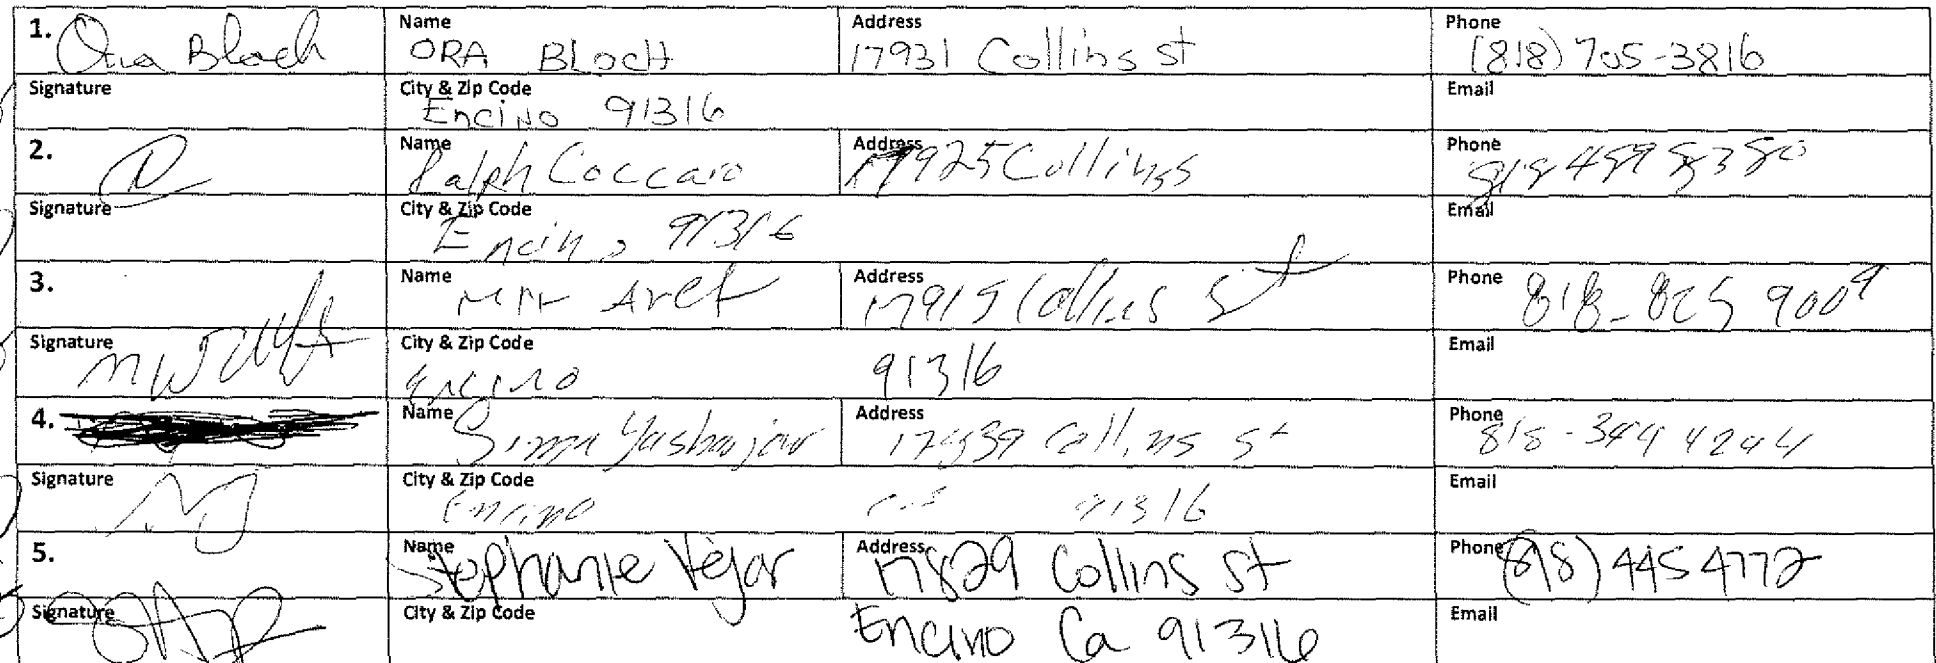 1. Ora Bloch Name ORA BLOCH Address 17931 Collins st Phone (818) 705-3816
Signature City & Zip Code Encino 91316 Email
2. Name Ralph Coccaro Address 17925 Collins Phone 818 489 8380
Signature City & Zip Code Encino 91316 Email
3. Name Mir Aref Address 17915 Collins St Phone 818-825 9009
Signature City & Zip Code Encino 91316 Email
4. Name Sima Address Collins st Phone 818-344 4244
Signature City & Zip Code Encino 91316 Email
5. Name Stephanie Vejar Address 17829 Collins St Phone (818) 445 4772
Signature City & Zip Code Encino Ca 91316 Email